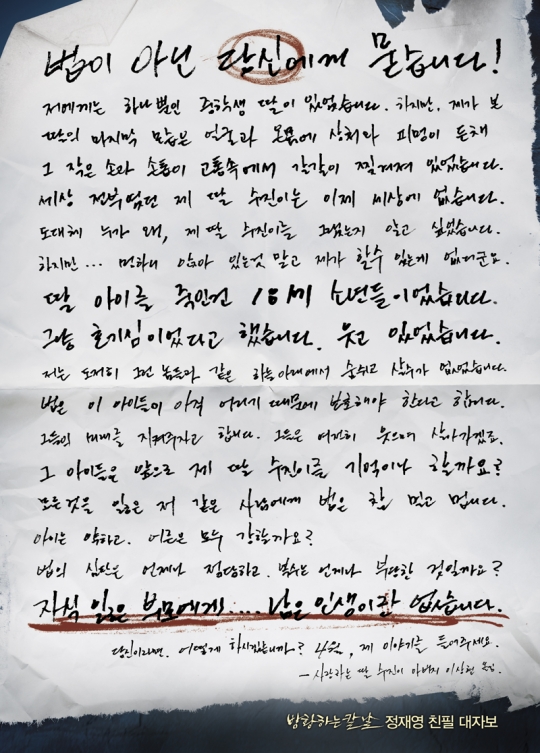 법이 아닌 당신에게 묻습니다!
저에게는 하나뿐인 중학생 딸이 있었습니다. 하지만, 제가 본
딸의 마지막 모습은 얼굴과 온몸에 상처와 피멍이 든채
그 작은 손과 손톱이 고통속에서 갈갈이 찢겨져 있었습니다.
세상 전부였던 제 딸 수진이는 이제 세상에 없습니다.
도대체 누가 왜, 제 딸 수진이를 그랬는지 알고 싶었습니다.
하지만... 멍하니 앉아 있는것 말고 제가 할수 있는게 없더군요.
딸 아이를 죽인건 18세 소년들이었습니다.
그냥 호기심이었다고 했습니다. 웃고 있었습니다.
저는 도저히 그런 놈들과 같은 하늘아래에서 숨쉬고 살수가 없었습니다.
법은 이 아이들이 아직 어리기 때문에 보호해야 한다고 합니다.
그들의 미래를 지켜주자고 합니다. 그들은 여전히 웃으며 살아가겠죠.
그 아이들은 앞으로 제 딸 수진이를 기억이나 할까요?
모든것을 잃은 저 같은 사람에게 법은 참 멀고 멉니다.
아이는 약하고. 어른은 모두 강할까요?
법의 심판은 언제나 정당하고. 복수는 언제나 부당한 것일까요?
자식 잃은 부모에게.... 남은 인생이란 없습니다.
당신이라면. 어떻게 하시겠습니까? 4월, 제 이야기를 들어주세요.
- 사랑하는 딸 수진이 아버지 이상현 올림.
방황하는 칼날 정재영 친필 대자보